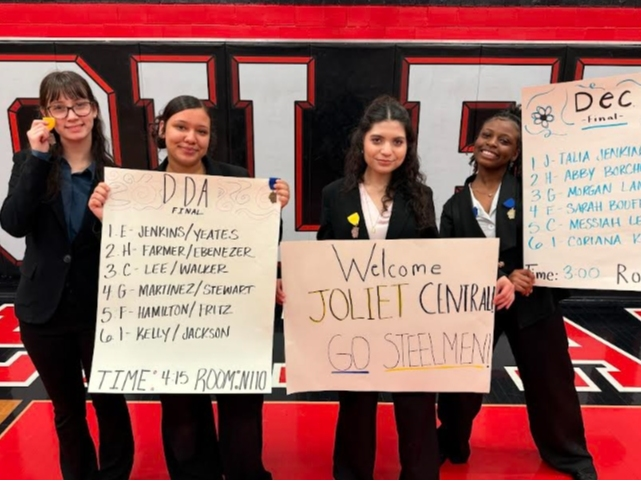 DDA
FINAL
1. E- JENKINS/YEATES
2 H- FARMER/EBENEZER
3 C- LEE/WALKER
4 G- MARTINEZ/STEWART
5 F- HAMILTON/FRITZ
6 I- KELLY/JACKSON
TIME: 4:15 ROOM: N110
Welcome
JOLIET CENTRAL!
GO STEELMEN!
Dec
-Final-
1 J- TALIA JENKIN
2 H- ABBY BORCH
3 G- MORGAN LA
4 E- SARAH BOUF
5 C- MESSIAH LE
6 I- CORIANA K
Time: 3:00 Ro